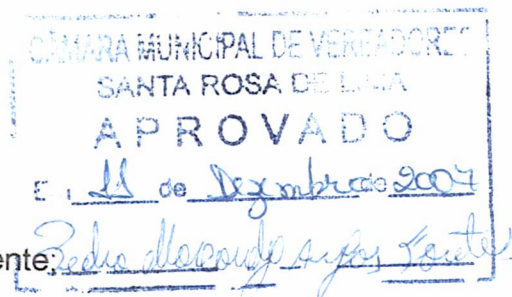 CÂMARA MUNICIPAL DE VEREADORES
SANTA ROSA DE LIMA
APROVADO
E 11 de Dezembro de 2007
ente; Pedro